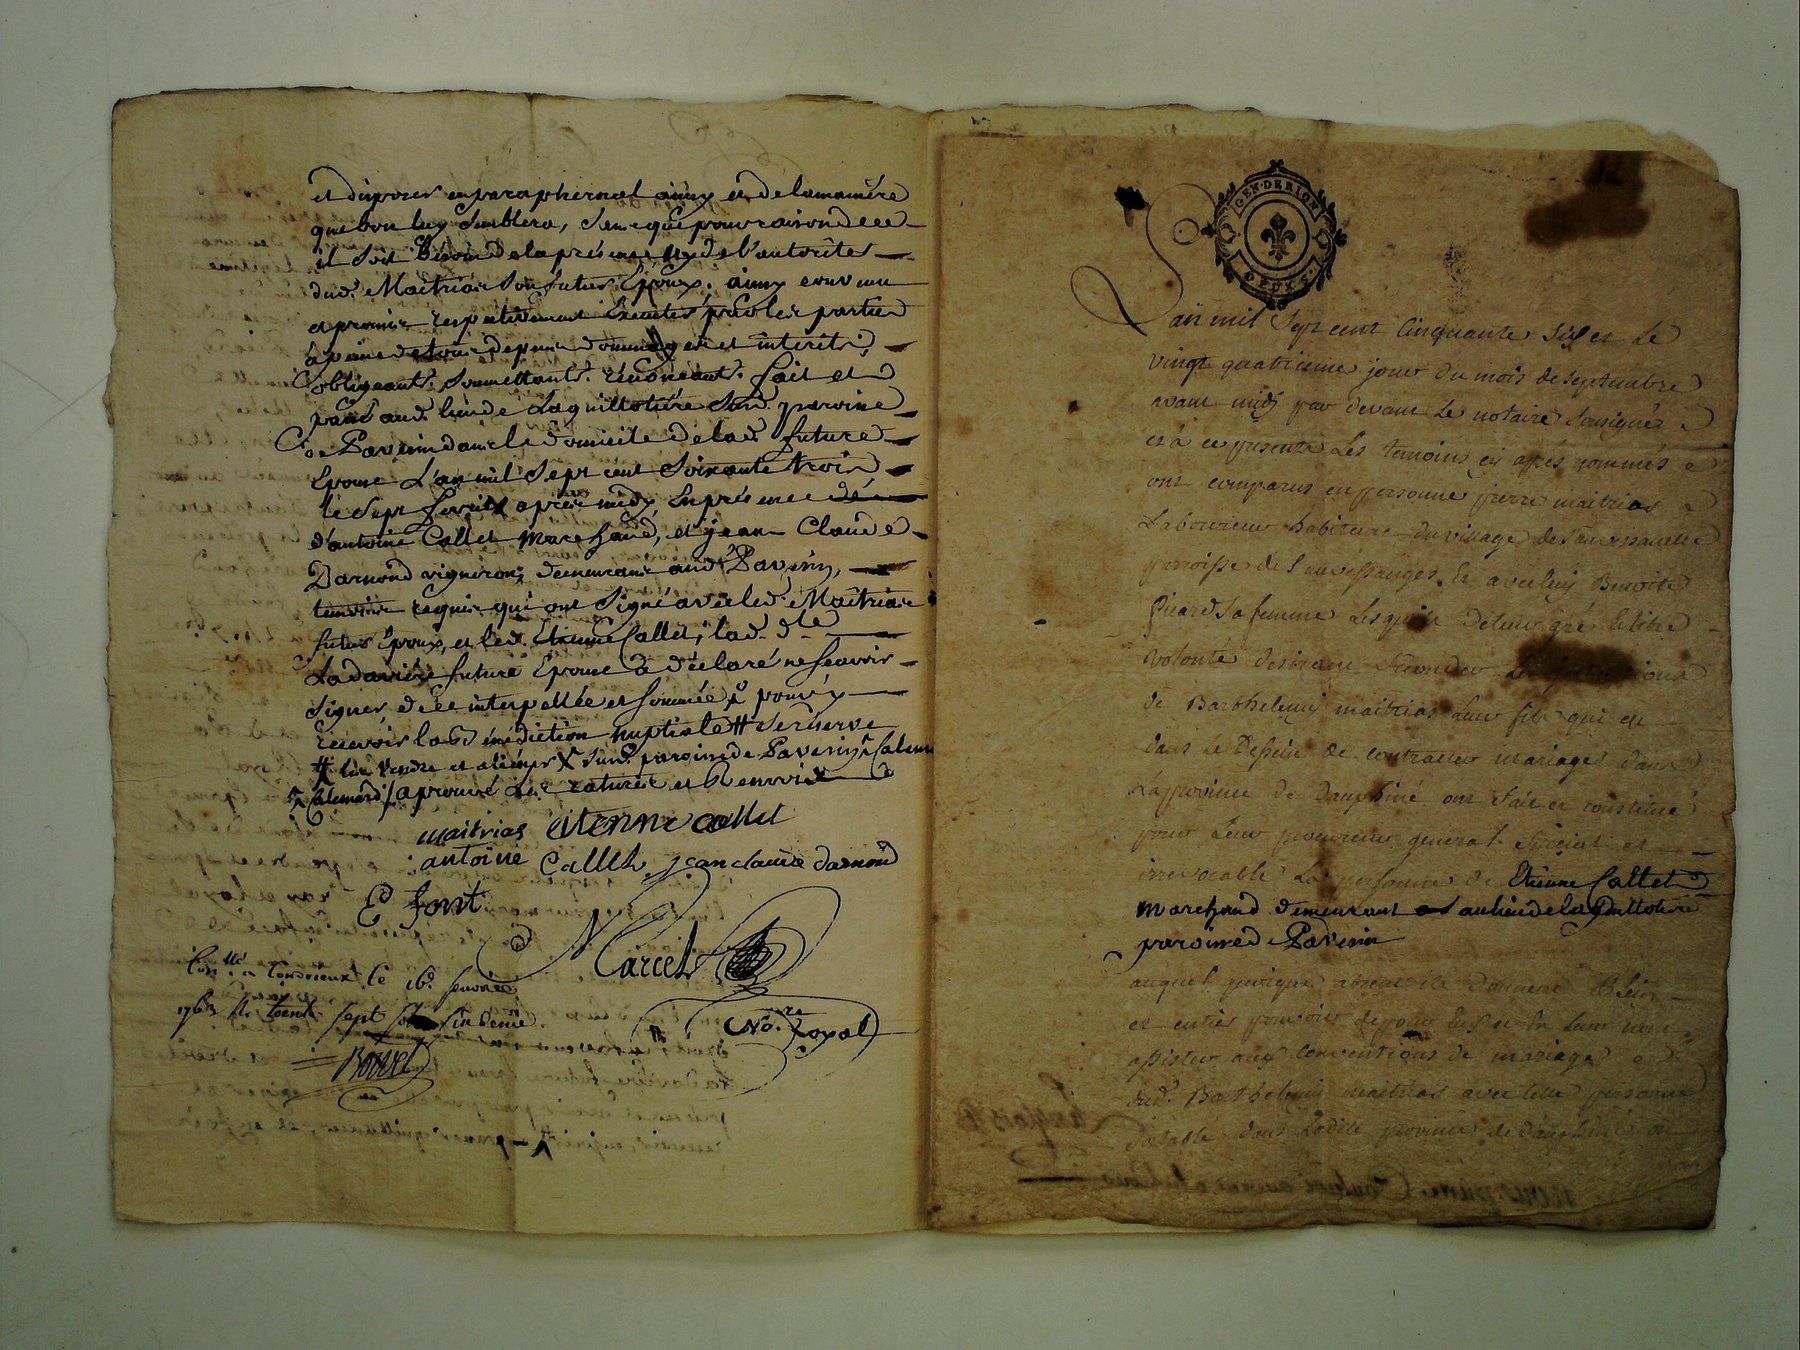 et disposer en paraphernal ainsy et de la manière
que bon luy semblera, sans que pour raison de ce
il soit besoin de la présence ny de l'autorité
dud. Maitrias son futur Epoux. ainsy convenu
et promis respectivement Executer par les parties
à peine de tous depens dommages et interets,
obligeants. soumettants. renonceants. fait et
passé aud. lieu de Laguillotière susd. paroisse
de Pavezin dans le domicile de lad. future
Epouse L'an mil sept cent soixante trois
le sept fevrier après midy, En présence de
d'antoine Callet marchand, et jean Claude
Darnond vigneron demeurants aud. Pavezin,
temoins requis qui ont signé avec led. Maitrias
futur Epoux, et led. Etienne Callet, lad. dle
future Epouse a déclaré ne scavoir
signer, de ce interpellée et sommée pouvoy
recevoir la Bénédiction nuptiale # se reserve
# les vendre et alièner X susd. paroisse de Pavezin
aprouvé les ratures et Renvois
maitrias etienne callet
antoine Callet jean claude darnond
E font
Marcel
Nore. royal
à Condrieux le 16. fevrier
1763 R. trente sept sols six denie
Bouvet
GEN. DE RION
DEUX S.
L'an mil sept cent Cinquante six et le
vingt quatrieme jour du mois de septembre
avant midy par devant Le notaire soussigné
et à ce presents Les temoins cy après nommés
ont comparus en personne pierre maitrias
Laboureur habitant du village de
parroisse de Sauvessanges. Et avec luy Benoite
Picard sa femme Lesquels de leur gré et libre
volonté desirant seconder Les intentions
de Barthelemy maitrias Leur fils qui est
dans le Dessein de contracter mariage dans
La province de Dauphiné ont fait et constitué
pour Leur procureur general special et
irrevocable La personne de Etienne Callet
marchand demeurant au lieu de la Guillotiere
paroisse de Pavezin
auquel quoique absent ils donnent plein
et entier pouvoir de pour Eux et En Leur nom
assister aux conventions de mariage
dud. Barthelemy maitrias avec telle personne
sortable dans Ladite province de Dauphiné